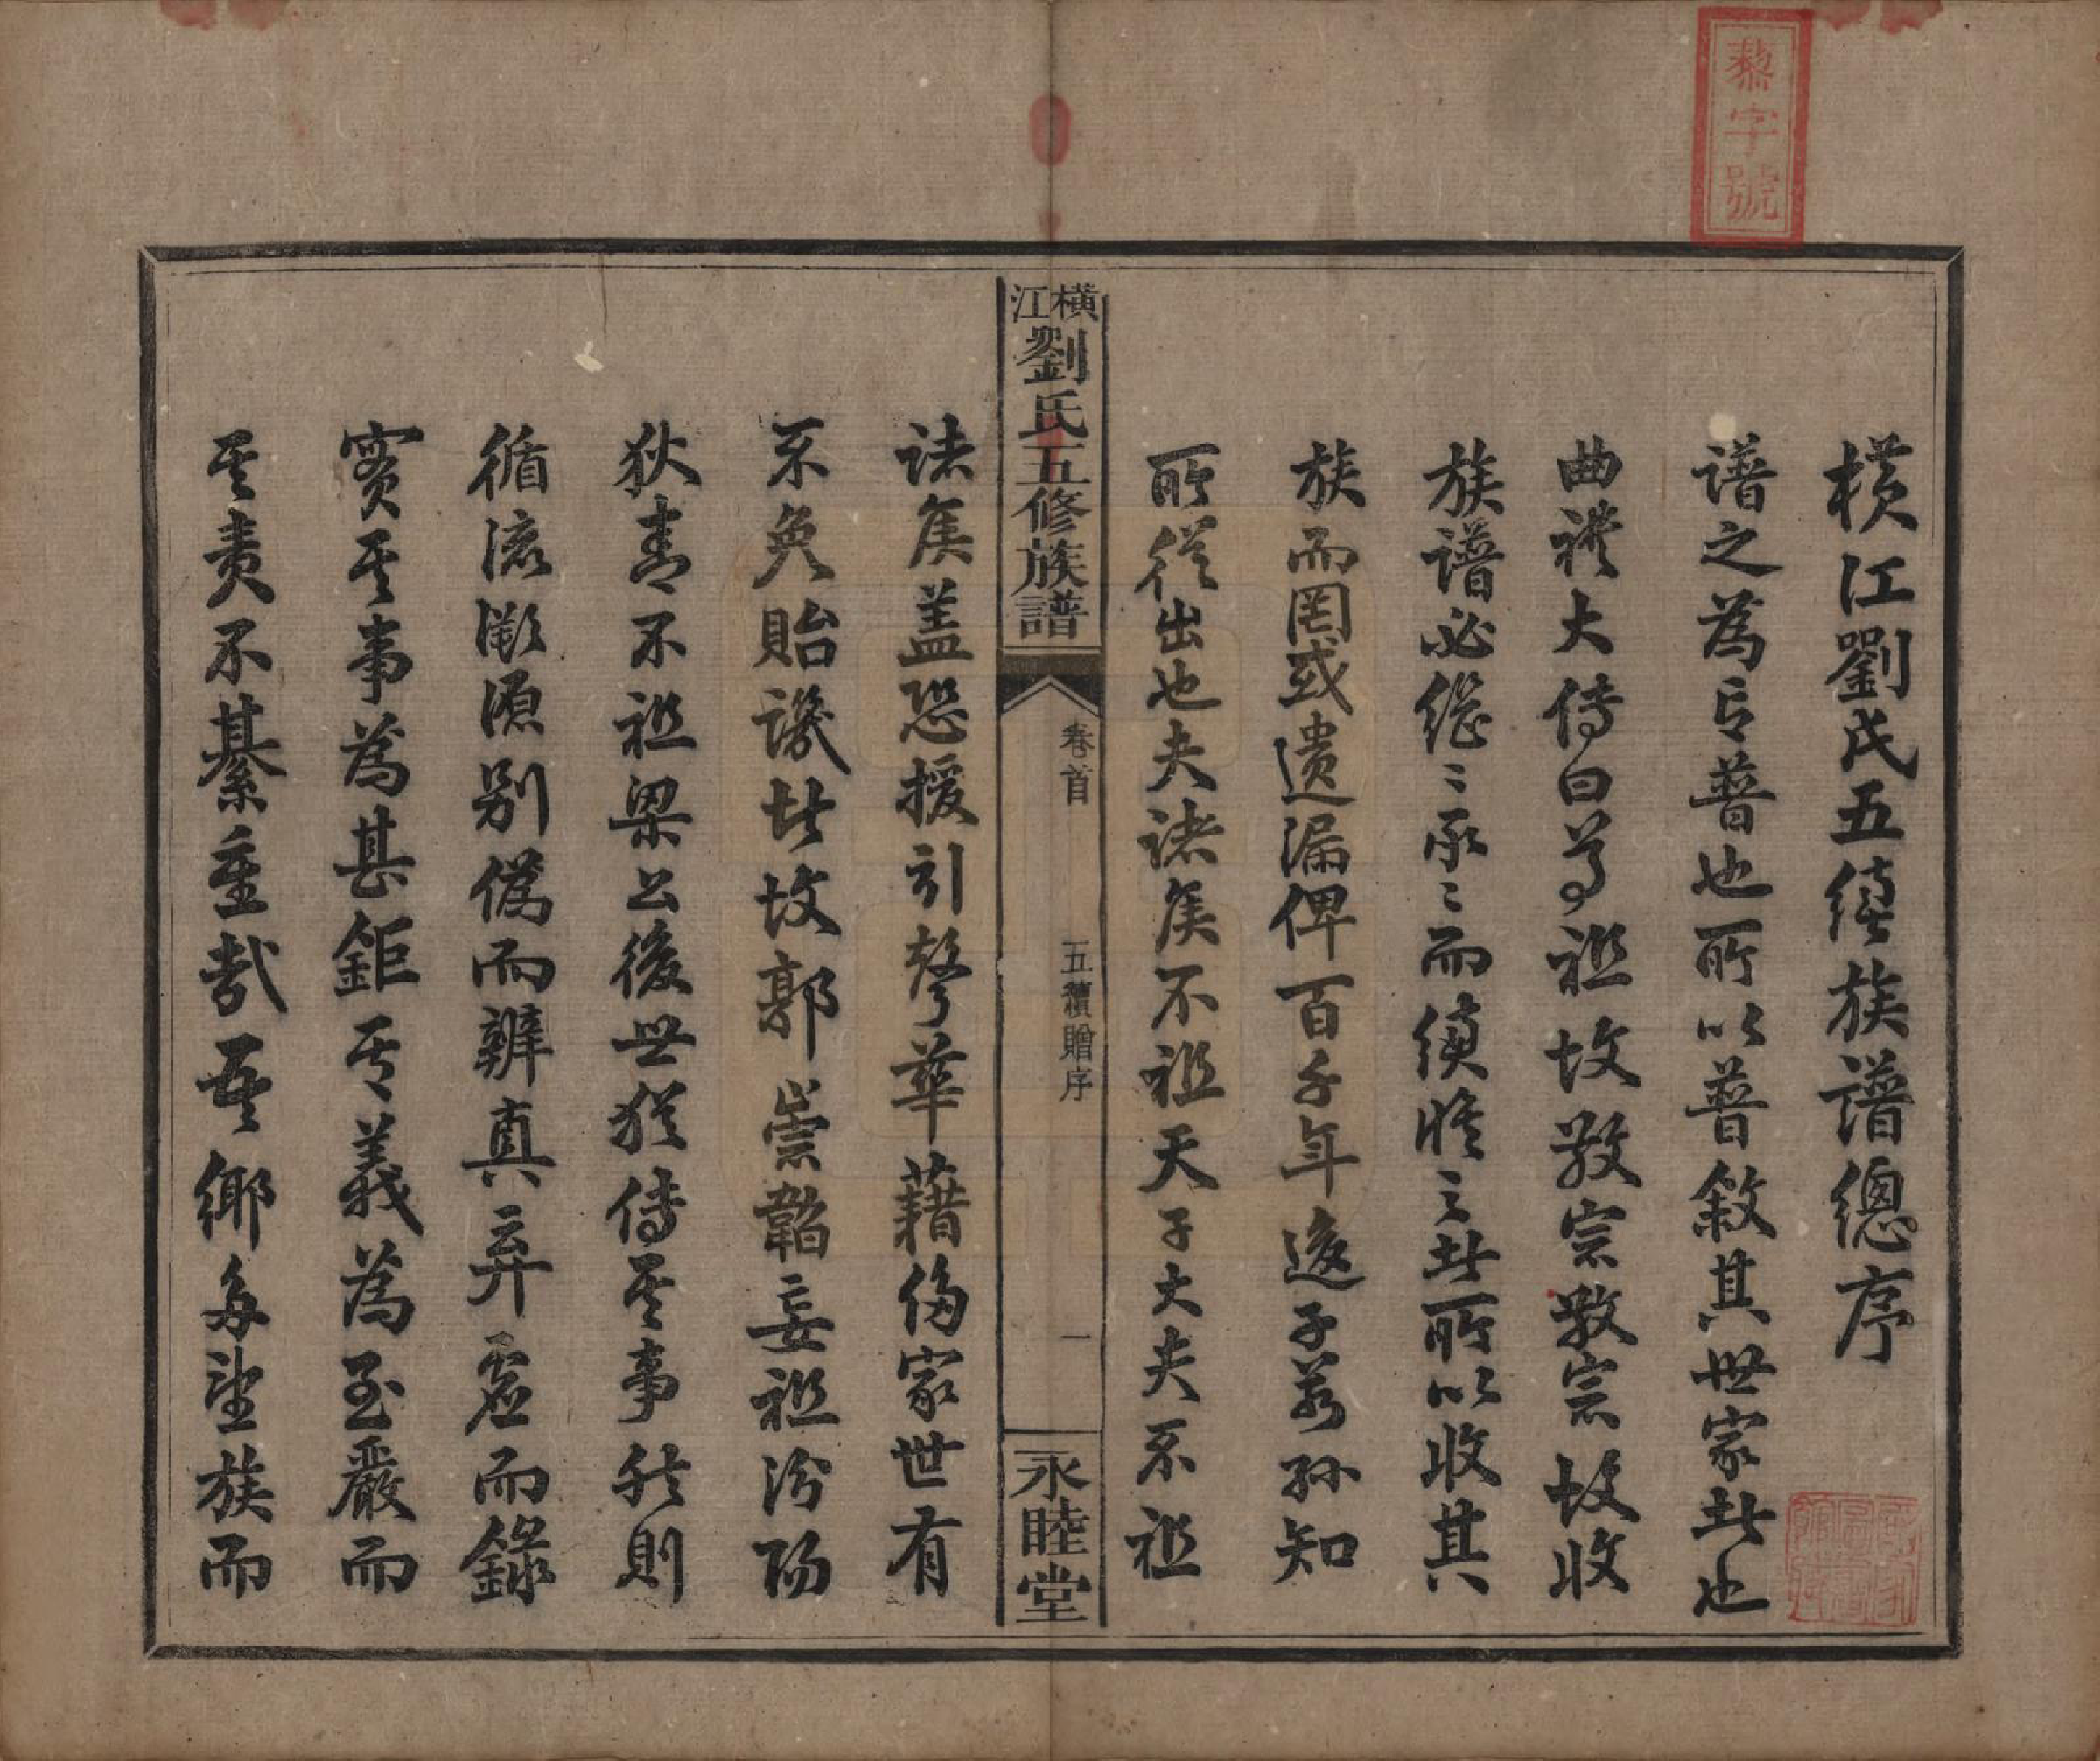 藜字號
橫江劉氏五續族譜總序
譜之為言普也所以普敘其世家者也
曲禮大傳曰尊祖故敬宗敬宗故收
族譜必繩〻承〻而續修之此所以收其
族而罔或遺漏俾百千年後子若孫知
所從出也夫諸侯不祖天子大夫不祖
橫江劉氏五修族譜
卷首
五續贈序
一
永睦堂
諸侯蓋恐援引聲華藉侈家世有
不免貽譏者故郭崇韜妄祖汾陽
狄青不祖梁公後世猶傳其事然則
循流溯源別偽而辨真弃虛而錄
實其事為甚鉅其義為至嚴而
其責不綦重哉吾鄉多望族而